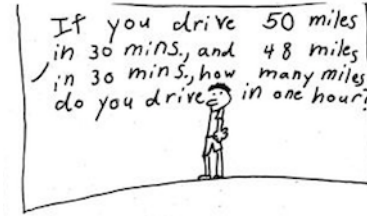 If you drive 50 miles
in 30 mins., and 48 miles
in 30 mins., how many miles
do you drive in one hour?